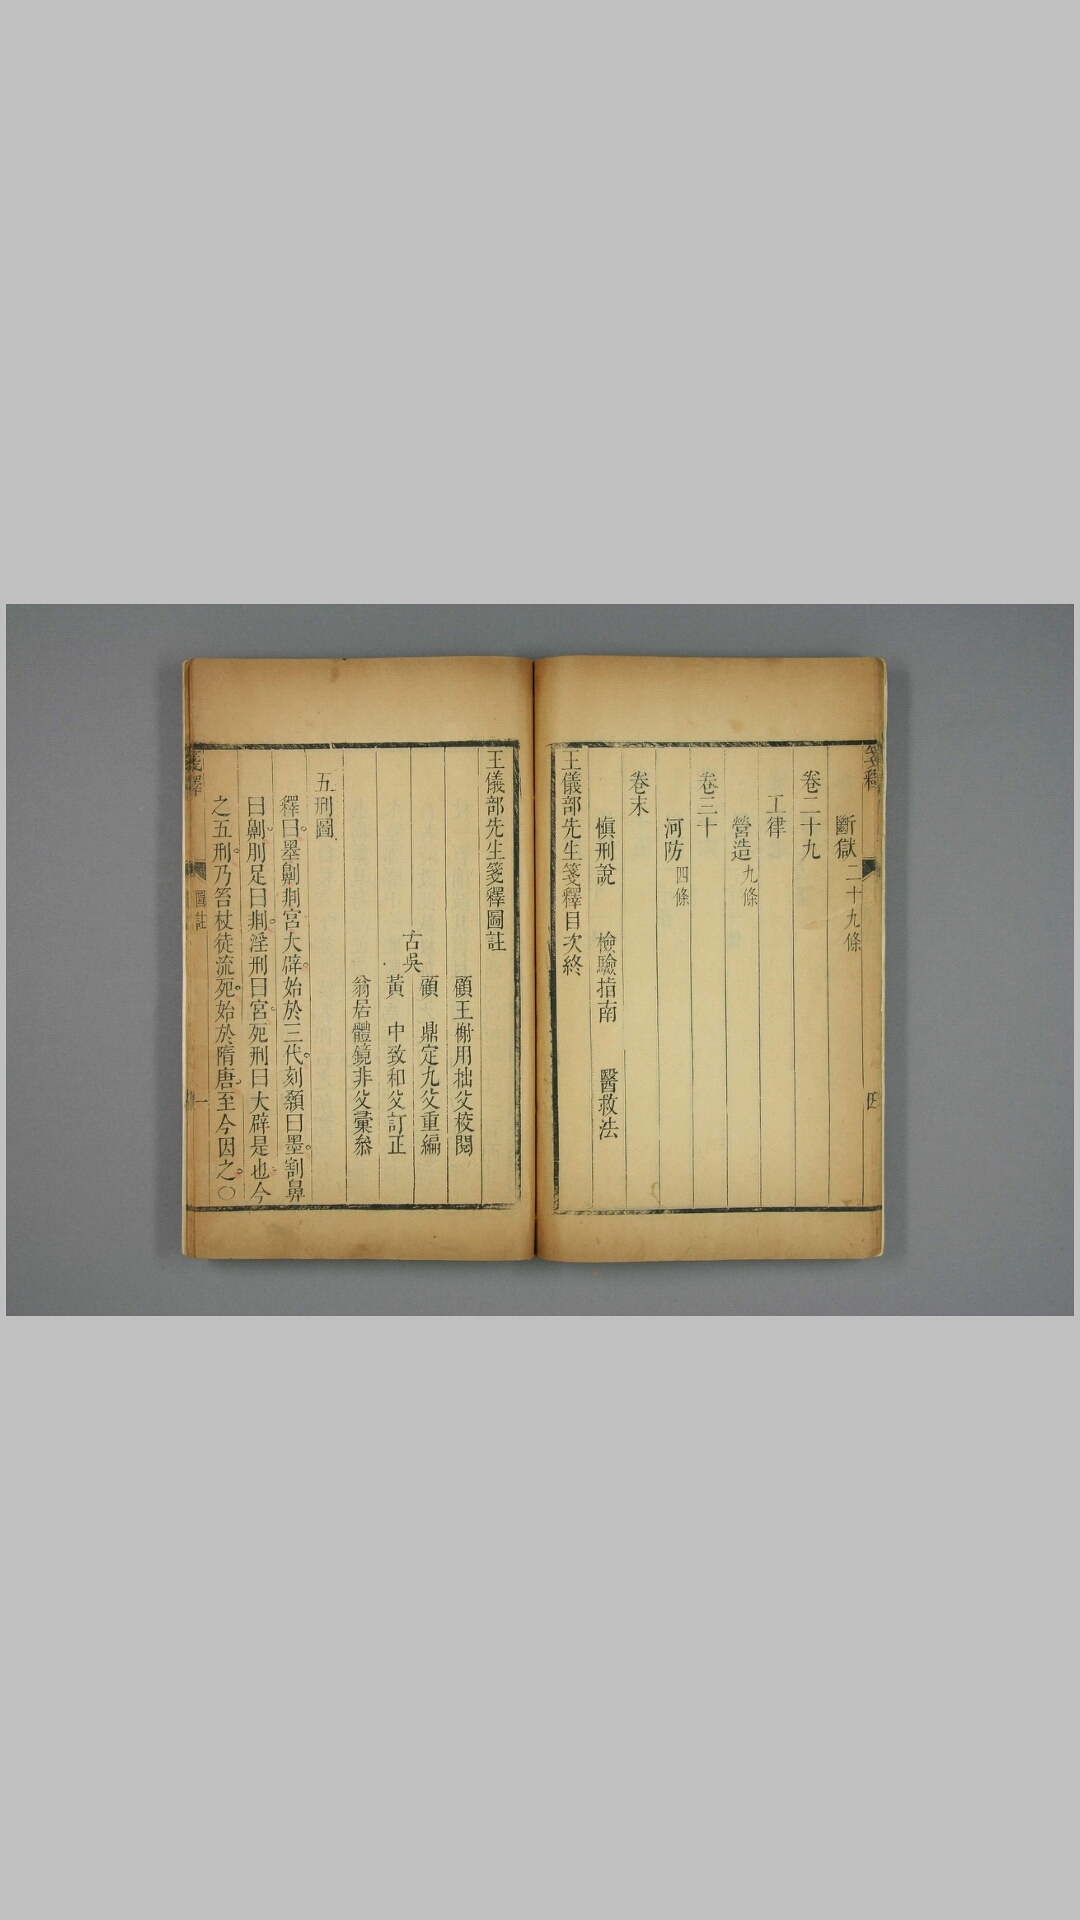 斷獄二十九條
卷二十九
工律
營造九條
卷三十
河防四條
卷末
慎刑說 檢驗指南 醫救法
王儀部先生箋釋目次終
王儀部先生箋釋圖註
顧王榭用拙父校閱
古吳
顧 鼎定九父重編
黃 中致和父訂正
翁居體鏡非父彙叅
五刑圖
釋曰墨劓剕宮大辟始於三代刻顙曰墨割鼻
曰劓刖足曰剕淫刑曰宮死刑曰大辟是也今
之五刑乃笞杖徒流死始於隋唐至今因之○
箋釋
圖註
一